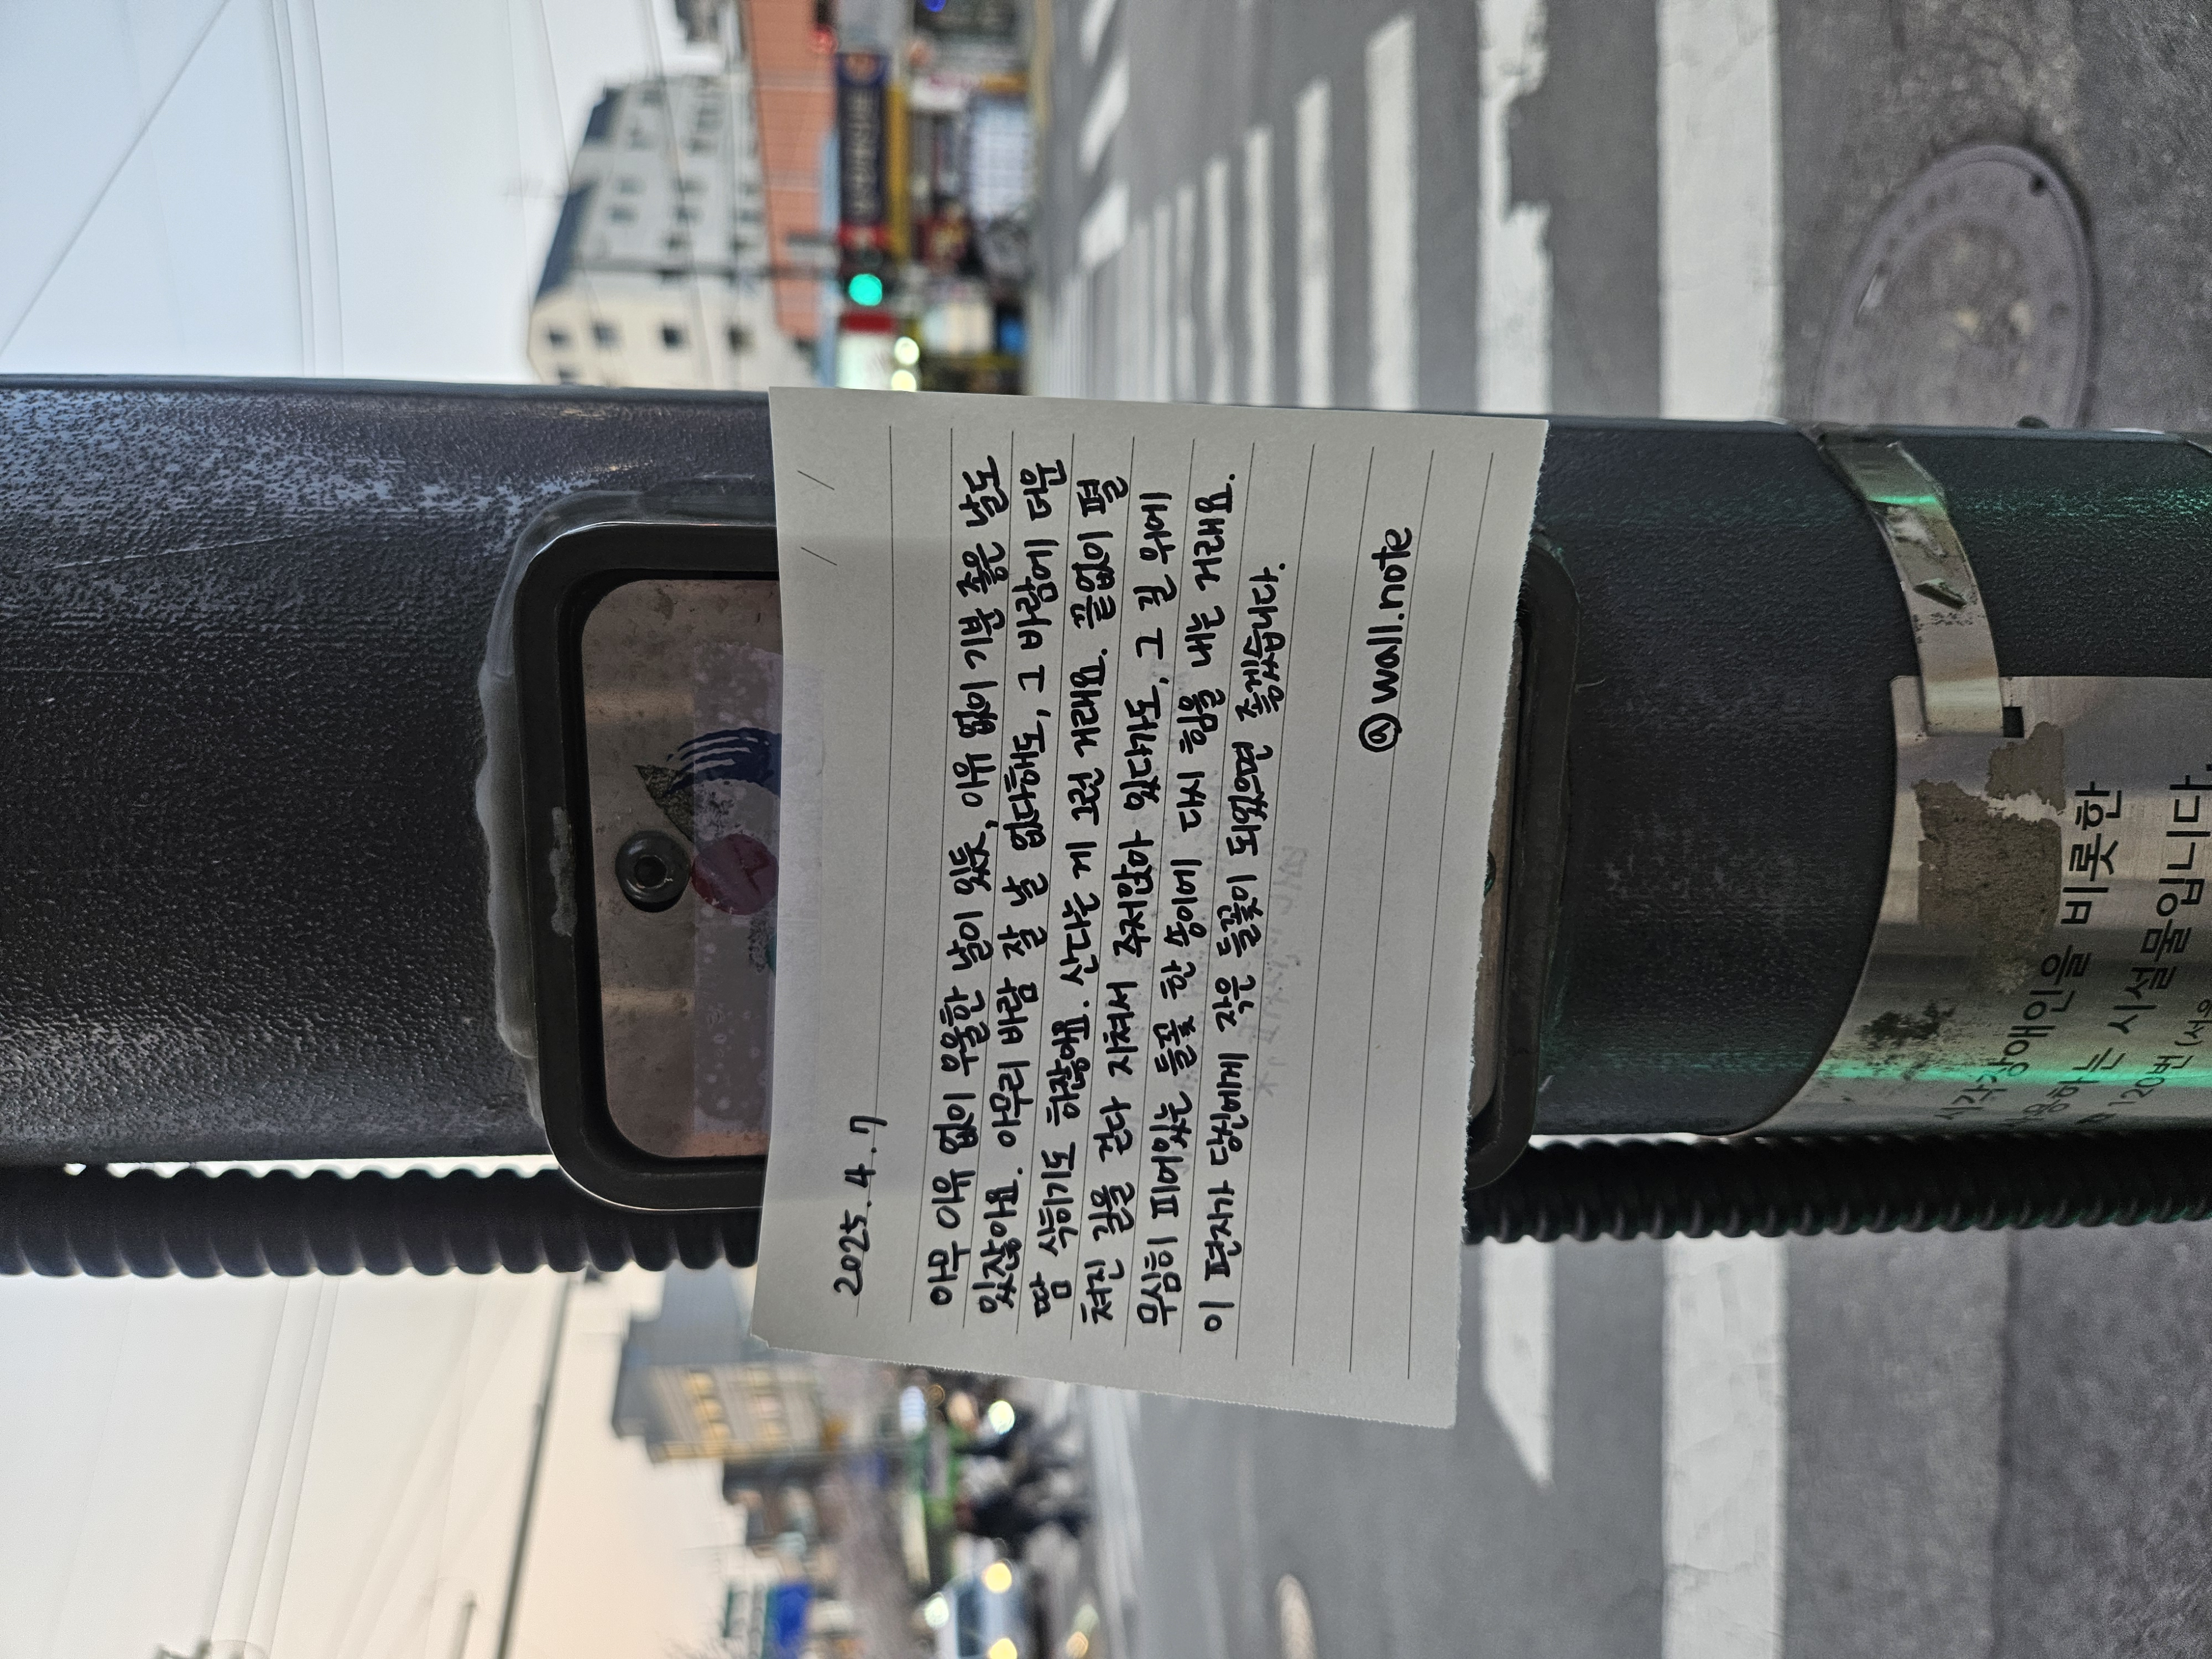 2025. 4. 7
아무 이유 없이 우울한 날이 있듯, 이유 없이 기분 좋은 날도
있잖아요. 아무리 바람 잘 날 없다해도, 그 바람에 더운
땀 식히기도 하잖아요. 산다는 게 그런 거래요. 끝없이 펼
쳐진 길을 걷다 지쳐서 주저앉아 있다가도, 그 길 위에
무심히 피어있는 들꽃 한 송이에 다시 힘을 내는 거래요.
이 편지가 당신에게 작은 들꽃이 되었으면 좋겠습니다.
@wall.note
시각장애인을 비롯한
사용하는 시설물입니다.
120번 (서울